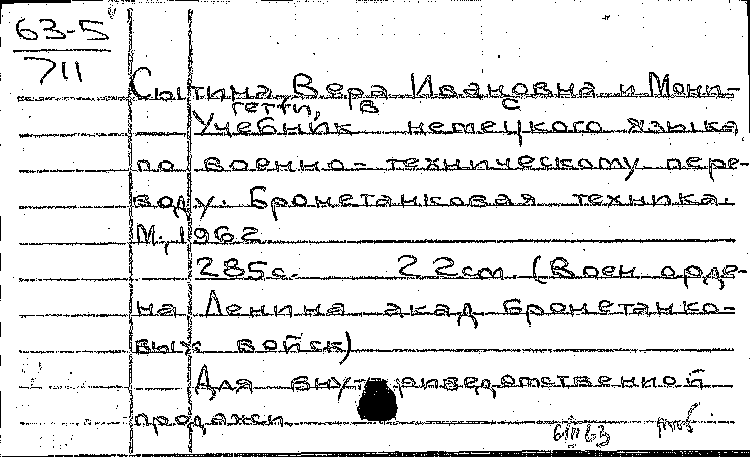 63-5
711
Сытина Вера Ивановна и Мони-
гетти, В С
Учебник немецкого языка
по военно-техническому пере-
воду. Бронетанковая техника.
М., 1962
285с. 22см. (Воен орде-
на Ленина акад бронетанко-
вых войск)
Для внутриведомственной
продажи
63